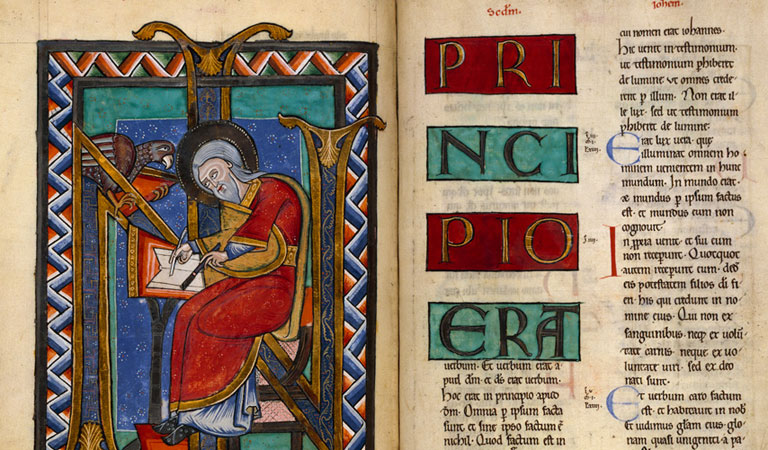 Scdm.
PRI
NCI
PIO
ERAT
verbum. Et verbum erat a
pud dm̄. et ds̄ erat verbum.
Hoc erat in principio apud
dm̄. Omnia ꝑ ipsum facta
sunt. et sine ipso factum ē
nichil. Quod factum est in
Iohem.
cui nomen erat iohannes.
hic venit in testimonium.
ut testimonium ꝑhiberet
de lumine. ut omnes crede
rent ꝑ illum. Non erat il
le lux. sed ut testimonium
ꝑhiberet de lumine.
Erat lux vera. que
illuminat omnem ho
minem venientem in hunc
mundum. In mundo erat.
et mundus ꝑ ipsum factus
est. et mundus eum non
cognovit.
In ꝓpria venit. et sui eum
non receperunt. Quotquot
autem receperunt eum. ded̄
eis potestatem filios di fi
eri. his qui credunt in no
mine eius. Qui non ex
sanguinibus. neqꝫ ex volū
tate carnis. neque ex vo
luntate viri. sed ex deo
nati sunt.
Et verbum caro factum
est. et habitavit in nob
Et vidimus gl̄am eius. glo
riam quasi unigeniti a pa